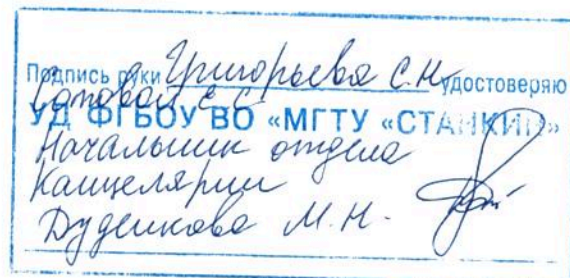 Подпись руки Григорьева С.Н. удостоверяю
Сотовой Е.С.
УД ФГБОУ ВО «МГТУ «СТАНКИН»
Начальник отдела
Канцелярии
Дуденкова М.Н.